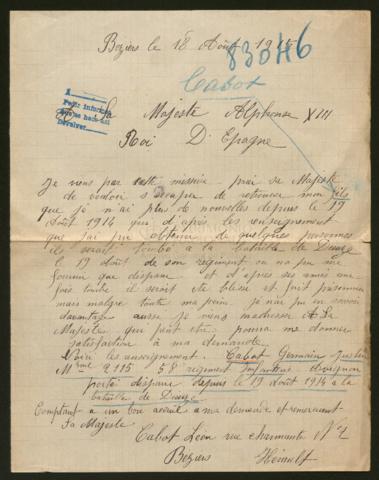 Beziers le 18 Août 1915
83046
Cabot
A
Pour information
A Sa Majesté Alphonse XIII
Roi D'Epagne
Je viens par cette missive prié sa Majesté
de vouloir s'occuper de retrouver mon fils
que je n'ai plus de nouvelles depuis le 19
Août 1914 qui d'après les renseignement
que j'ai pu obtenir de quelques personnes
il serait tombé a la bataille de Dieuze
le 19 août de son regiment on na pu me
fournir que disparu et d'après ses amis une
fois tombé il serait été blésé et fait prisonnier
mais malgré toute ma peine j'e nai pu en savoir
davantage aussi je viens madresser A Sa
Majesté qui peut être pourra me donner
satisfaction a ma demande
Voici les renseignement. Cabot Germain
Mme 2115 58e regiment Infanterie Avignon
porté disparu depuis le 19 Août 1914 a la
bataille de Dieuze
Comptant a un bon accueil a ma demande et remerciant
Sa Majesté
Cabot Léon rue charmante N°
Beziers Hérault